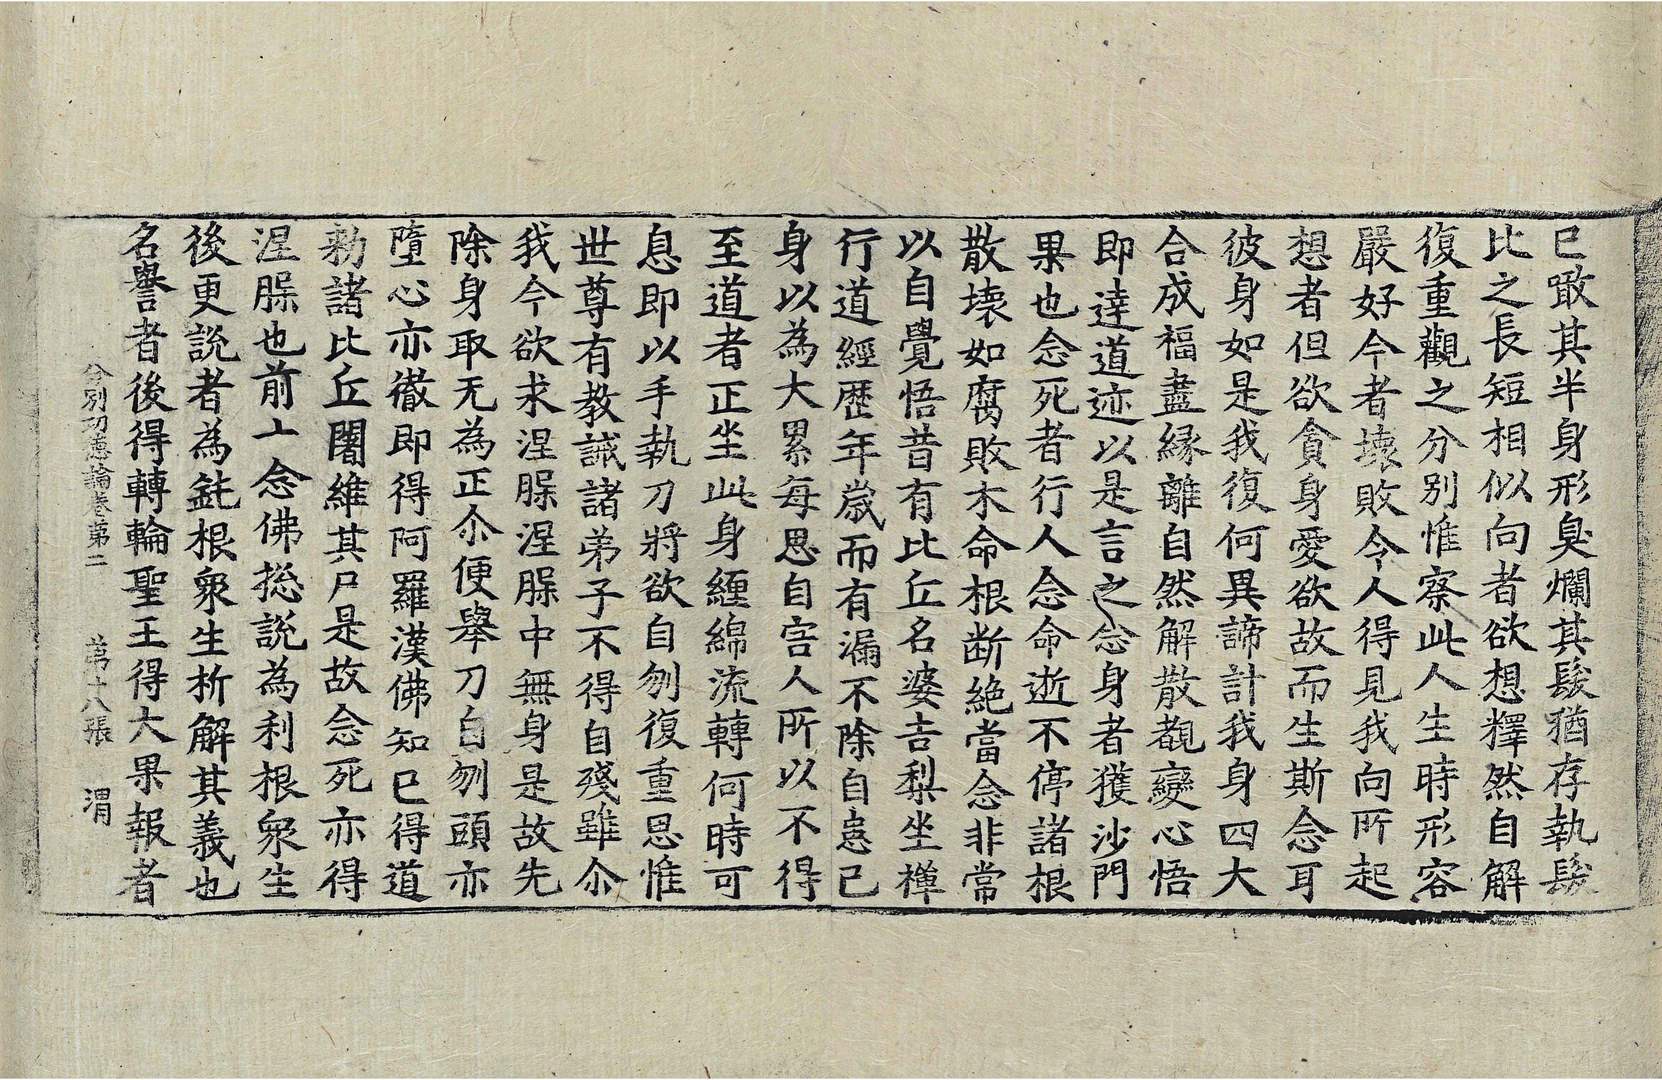 已噉其半身形臭爛其髮猶存執髮
比之長短相似向者欲想釋然自解
復重觀之分別惟察此人生時形容
嚴好今者壞敗令人得見我向所起
想者但欲貪身愛欲故而生斯念耳
彼身如是我復何異諦計我身四大
合成福盡緣離自然解散觀變心悟
即達道迹以是言之念身者獲沙門
果也念死者行人念命逝不停諸根
散壞如腐敗木命根断絶當念非常
以自覺悟昔有比丘名婆吉梨坐禅
行道經歴年歲而有漏不除自恚己
身以為大累每思自害人所以不得
至道者正坐此身纏綿流轉何時可
息即以手執刀將欲自刎復重思惟
世尊有教誡諸弟子不得自殘雖尒
我今欲求涅脲涅脲中無身是故先
除身取无為正尒便舉刀自刎頭亦
墮心亦徹即得阿羅漢佛知已得道
勑諸比丘闍維其尸是故念死亦得
涅脲也前十念佛捴說為利根衆生
後更說者為鈍根衆生析解其義也
名譽者後得轉輪聖王得大果報者
分別功德論卷第二 苐十八張 渭